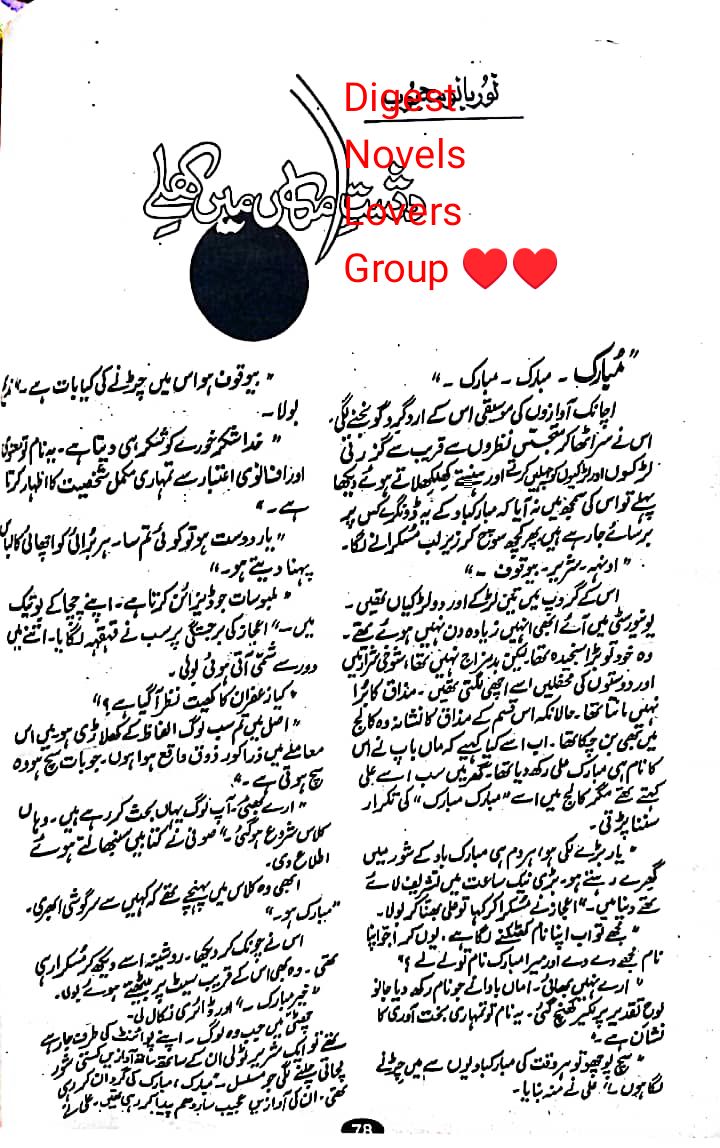 نور بانو محبوب
دشتِ امکاں میں کھلے
Digest
Novels
Lovers
Group ♥♥
"مُبارک ۔ مبارک ۔ مبارک ۔"
اچانک آوازوں کی موسیقی اس کے اردگرد گونجنے لگی،
اس نے سر اٹھا کر متجسس نظروں سے قریب سے گزرتی
لڑکوں اور لڑکیوں کو چہلیں کرتے اور ہنستے کھلکھلاتے ہوئے دیکھا
پہلے تو اس کی سمجھ میں نہ آیا کہ مبارکباد کے یہ ڈونگرے کس پر
برسائے جا رہے ہیں، پھر کچھ سوچ کر زیرِ لب مسکرانے لگا۔
"اونہہ ۔ شریر ۔ بیوقوف ۔"
اس کے گروپ میں تین لڑکے اور دو لڑکیاں تھیں۔
یونیورسٹی میں آئے ابھی انہیں زیادہ دن نہیں ہوئے تھے۔
وہ خود تو بڑا سنجیدہ تھا لیکن بدمزاج نہیں تھا، شوخی شرارتیں
اور دوستوں کی محفلیں اسے اچھی لگتی تھیں۔ مذاق کا بُرا
نہیں مانتا تھا۔ حالانکہ اس قسم کے مذاق کا نشانہ وہ کالج
میں بھی بن چکا تھا۔ اب اسے کیا کہیے کہ ماں باپ نے اس
کا نام ہی مبارک علی رکھ دیا تھا۔ گھر میں سب اسے علی
کہتے تھے مگر کالج میں اسے "مبارک مبارک" کی تکرار
سننا پڑتی۔
"یار بڑے لکی ہو، ہر دم ہی مبارک باد کے شور میں
گھیرے رہتے ہو۔ بڑی نیک ساعت میں تشریف لائے
تھے دنیا میں۔" اعجاز نے مسکرا کر کہا تو علی بھنا کر بولا۔
"مجھے تو اب اپنا نام کھٹکنے لگا ہے، یوں کرو اپنا
نام مجھے دے دے اور میرا مبارک نام تو لے لے؟"
"ارے نہیں بھائی۔ اماں باوا نے جو نام رکھ دیا جانو
لوح تقدیر پر لکیر کھنچ گئی۔ یہ نام تو تمہاری بخت آوری کا
نشان ہے۔"
"سچ پوچھو تو ہر وقت کی مبارکبادیوں سے میں چڑنے
لگا ہوں۔" علی نے منہ بنایا۔
"بیوقوف ہو اس میں چڑنے کی کیا بات ہے۔"
بولا۔
"خدا شکر خورے کو شکر ہی دیتا ہے۔ یہ نام تو
اور افسانوی اعتبار سے تمہاری مکمل شخصیت کا اظہار کرتا
ہے۔"
"یار دوست ہو تو کوئی تم سا۔ ہر بُرائی کو اچھائی کا
پہنا دیتے ہو۔"
"ملبوسات جو ڈیزائن کرتا ہے۔ اپنے چچا کے بوتیک
میں۔" اعجاز کی برجستگی پر سب نے قہقہہ لگایا۔ اتنے میں
دور سے شمّی آتی ہوئی بولی۔
"کیا زعفران کا کھیت نظر آ گیا ہے؟"
"اصل میں تم سب لوگ الفاظ کے کھلاڑی ہو، میں اس
معاملے میں ذرا کور ذوق واقع ہوا ہوں۔ جو بات سچ ہو وہ
سچ ہوتی ہے۔"
"ارے بھئی۔ آپ لوگ یہاں بحث کر رہے ہیں۔ وہاں
کلاس شروع ہو گئی۔" صوفی نے کتابیں سنبھالتے ہوئے
اطلاع دی۔
ابھی وہ کلاس میں پہنچے تھے کہ کہیں سے سرگوشی ابھری۔
"مبارک ہو۔"
اس نے چونک کر دیکھا۔ روشینہ اسے دیکھ کر مسکرا رہی
تھی۔ وہ بھی اس کے قریب سیٹ پر بیٹھتے ہوئے بولا۔
"خیر مبارک ۔" اور ڈائری نکال لی۔
چھٹی میں جب وہ لوگ ۔ اپنے پوائنٹ کی طرف جا رہے
تھے تو ایک شریر ٹولی ان کے ساتھ ساتھ آوازیں کستی شور
مچاتی چلنے لگی جو مسلسل ۔ مبارک، مبارک کی گردان کر رہی
تھی۔ ان کی آوازیں عجیب سا ردھم پیدا کر رہی تھیں۔ علی نے
78